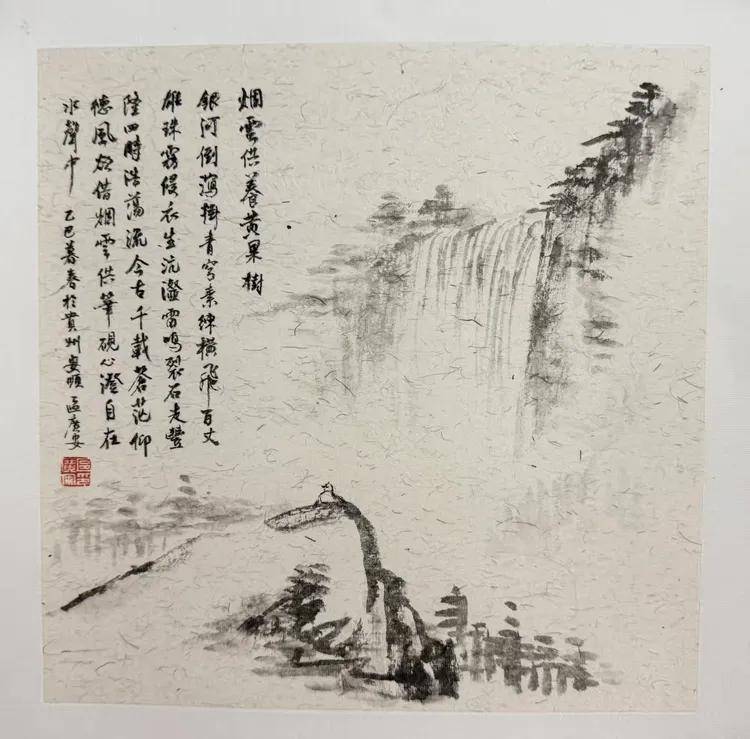 烟雲供養黄果樹
銀河倒瀉掛青穹素練横飛百丈
雄珠霧侵衣生沆瀣雷鳴裂石走豐
隆四時浩蕩流今古千載蒼茫仰
德風欲借烟雲供筆硯心澄自在
水聲中 乙巳暮春於貴州安順 區廣安